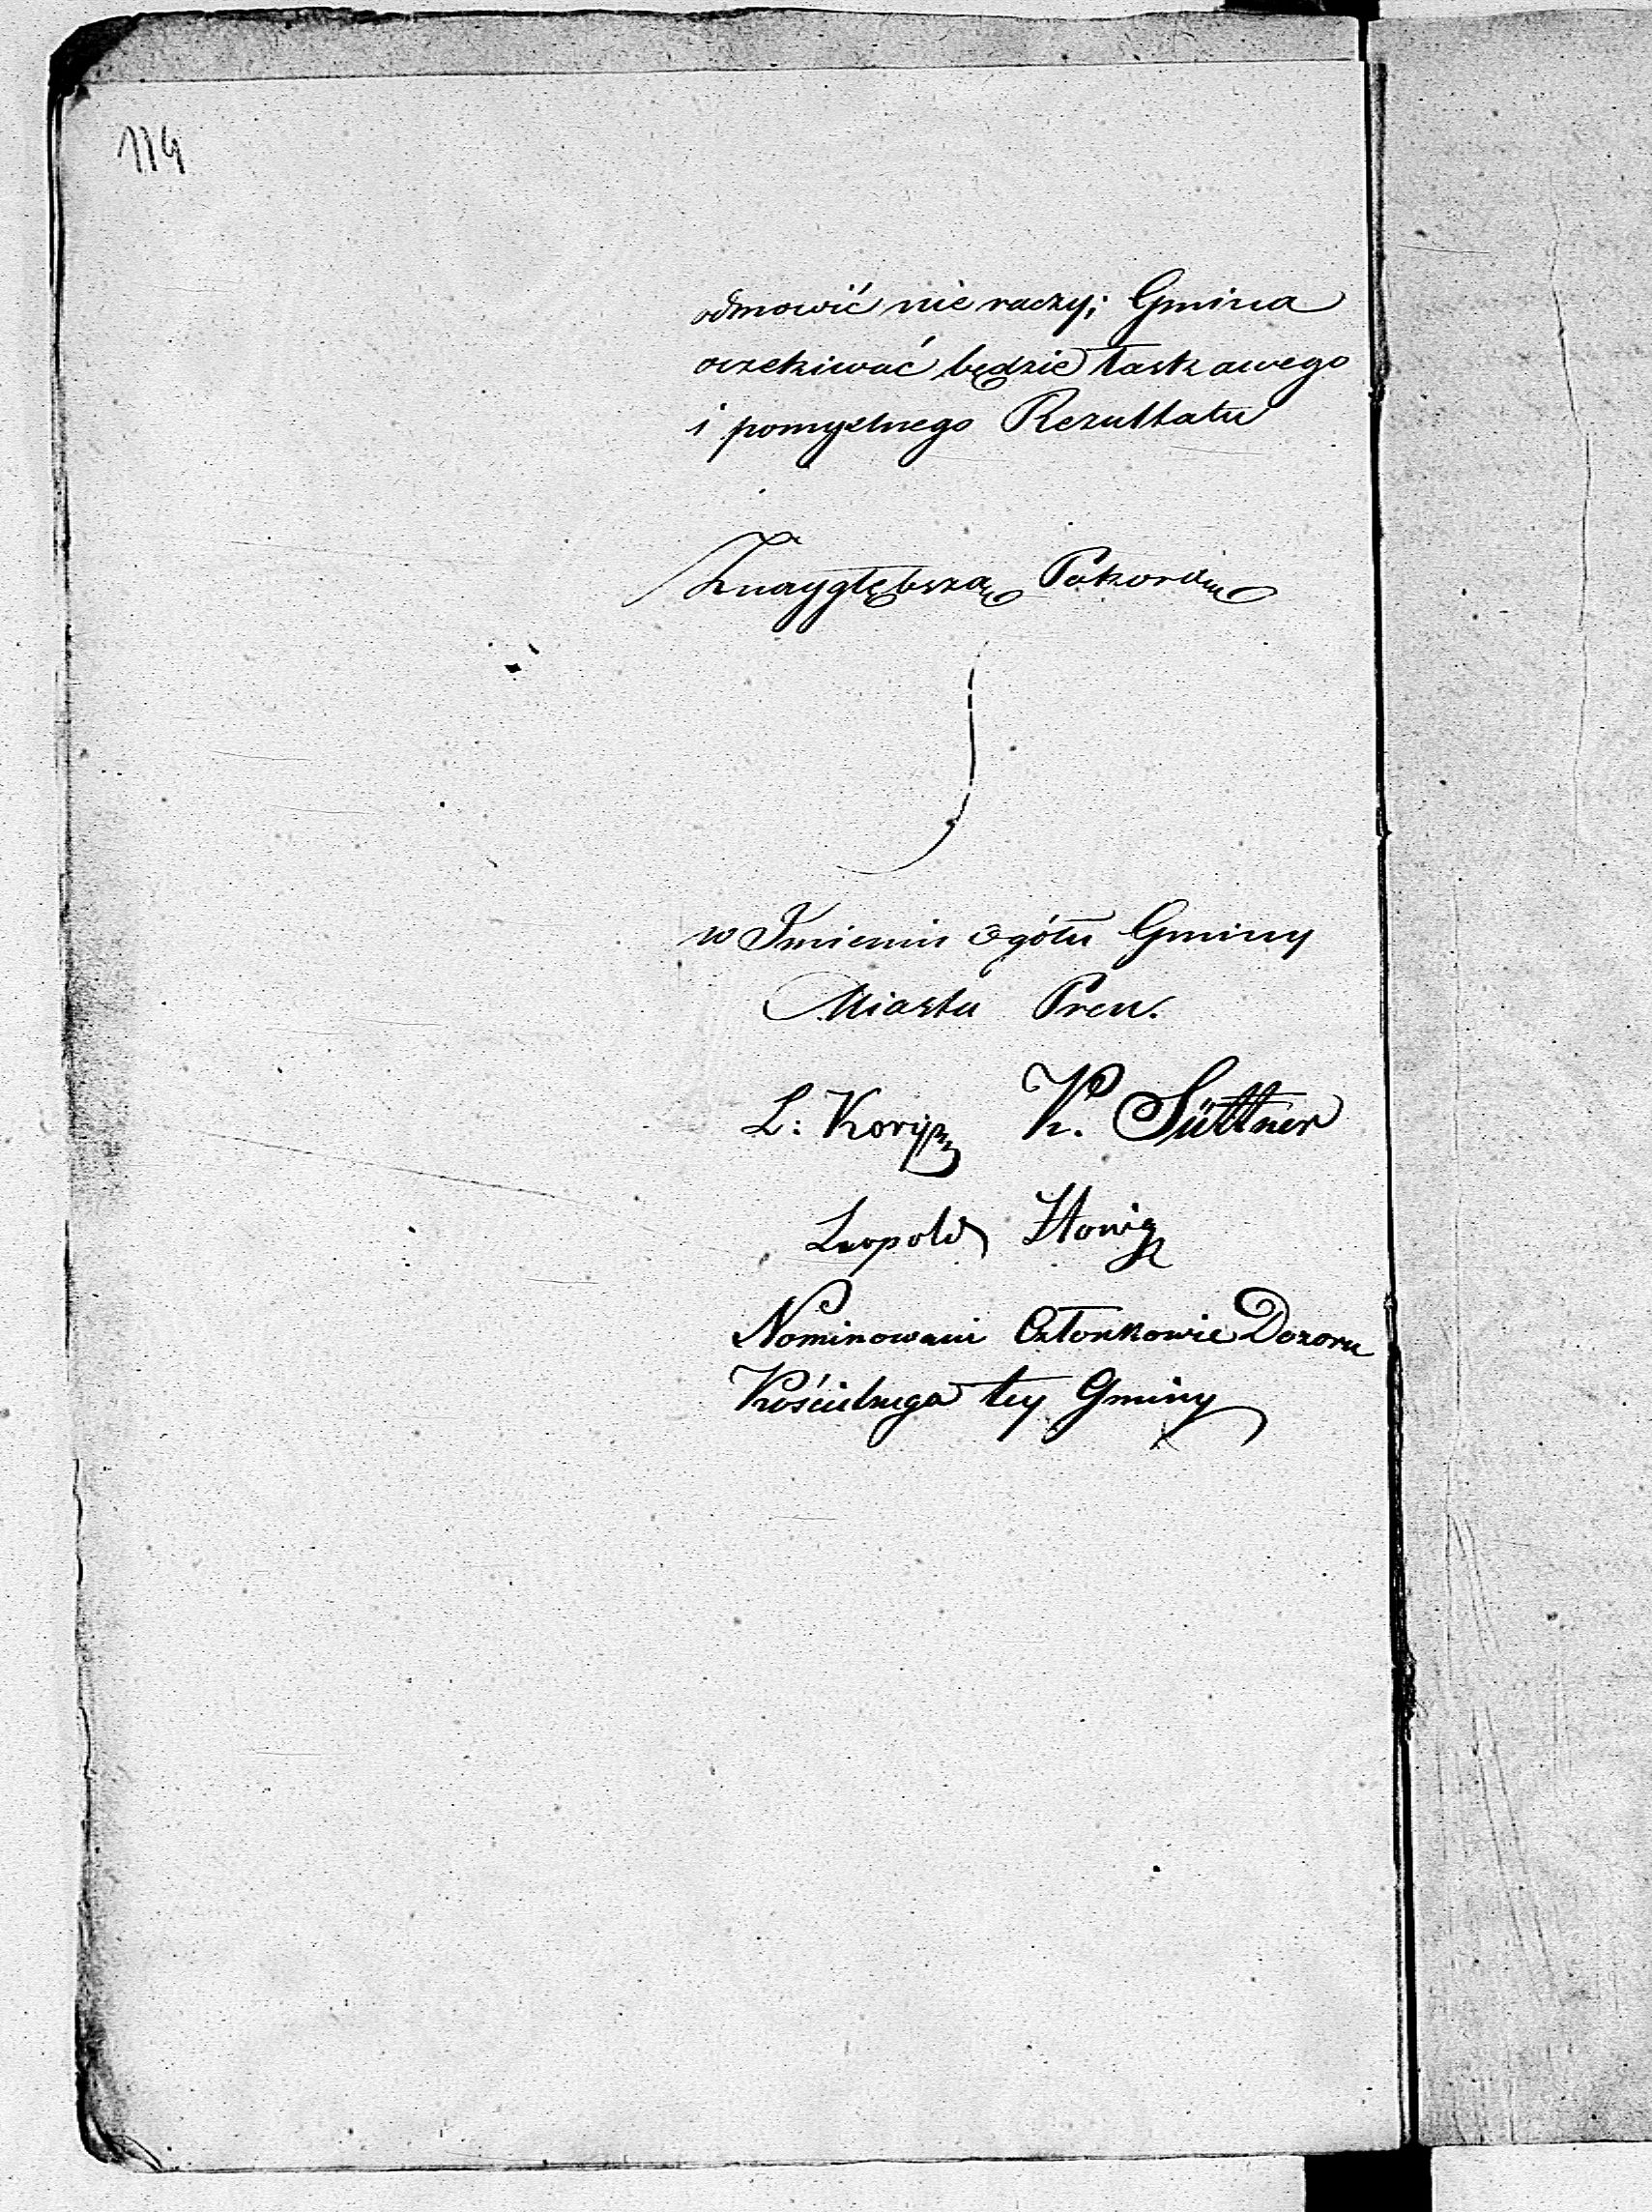 114
odmowić nie raczy; Gmina
oczekiwać będzie łaskawego
i pomyslnego Rezultatu
Z naygłębszą Pokorą
w Imieniu Ogółu Gminy
Miasta Pren.
L: K. Süttner
Leopold Honig
Nominowani Członkowie Dozoru
Kościelnego tey Gminy